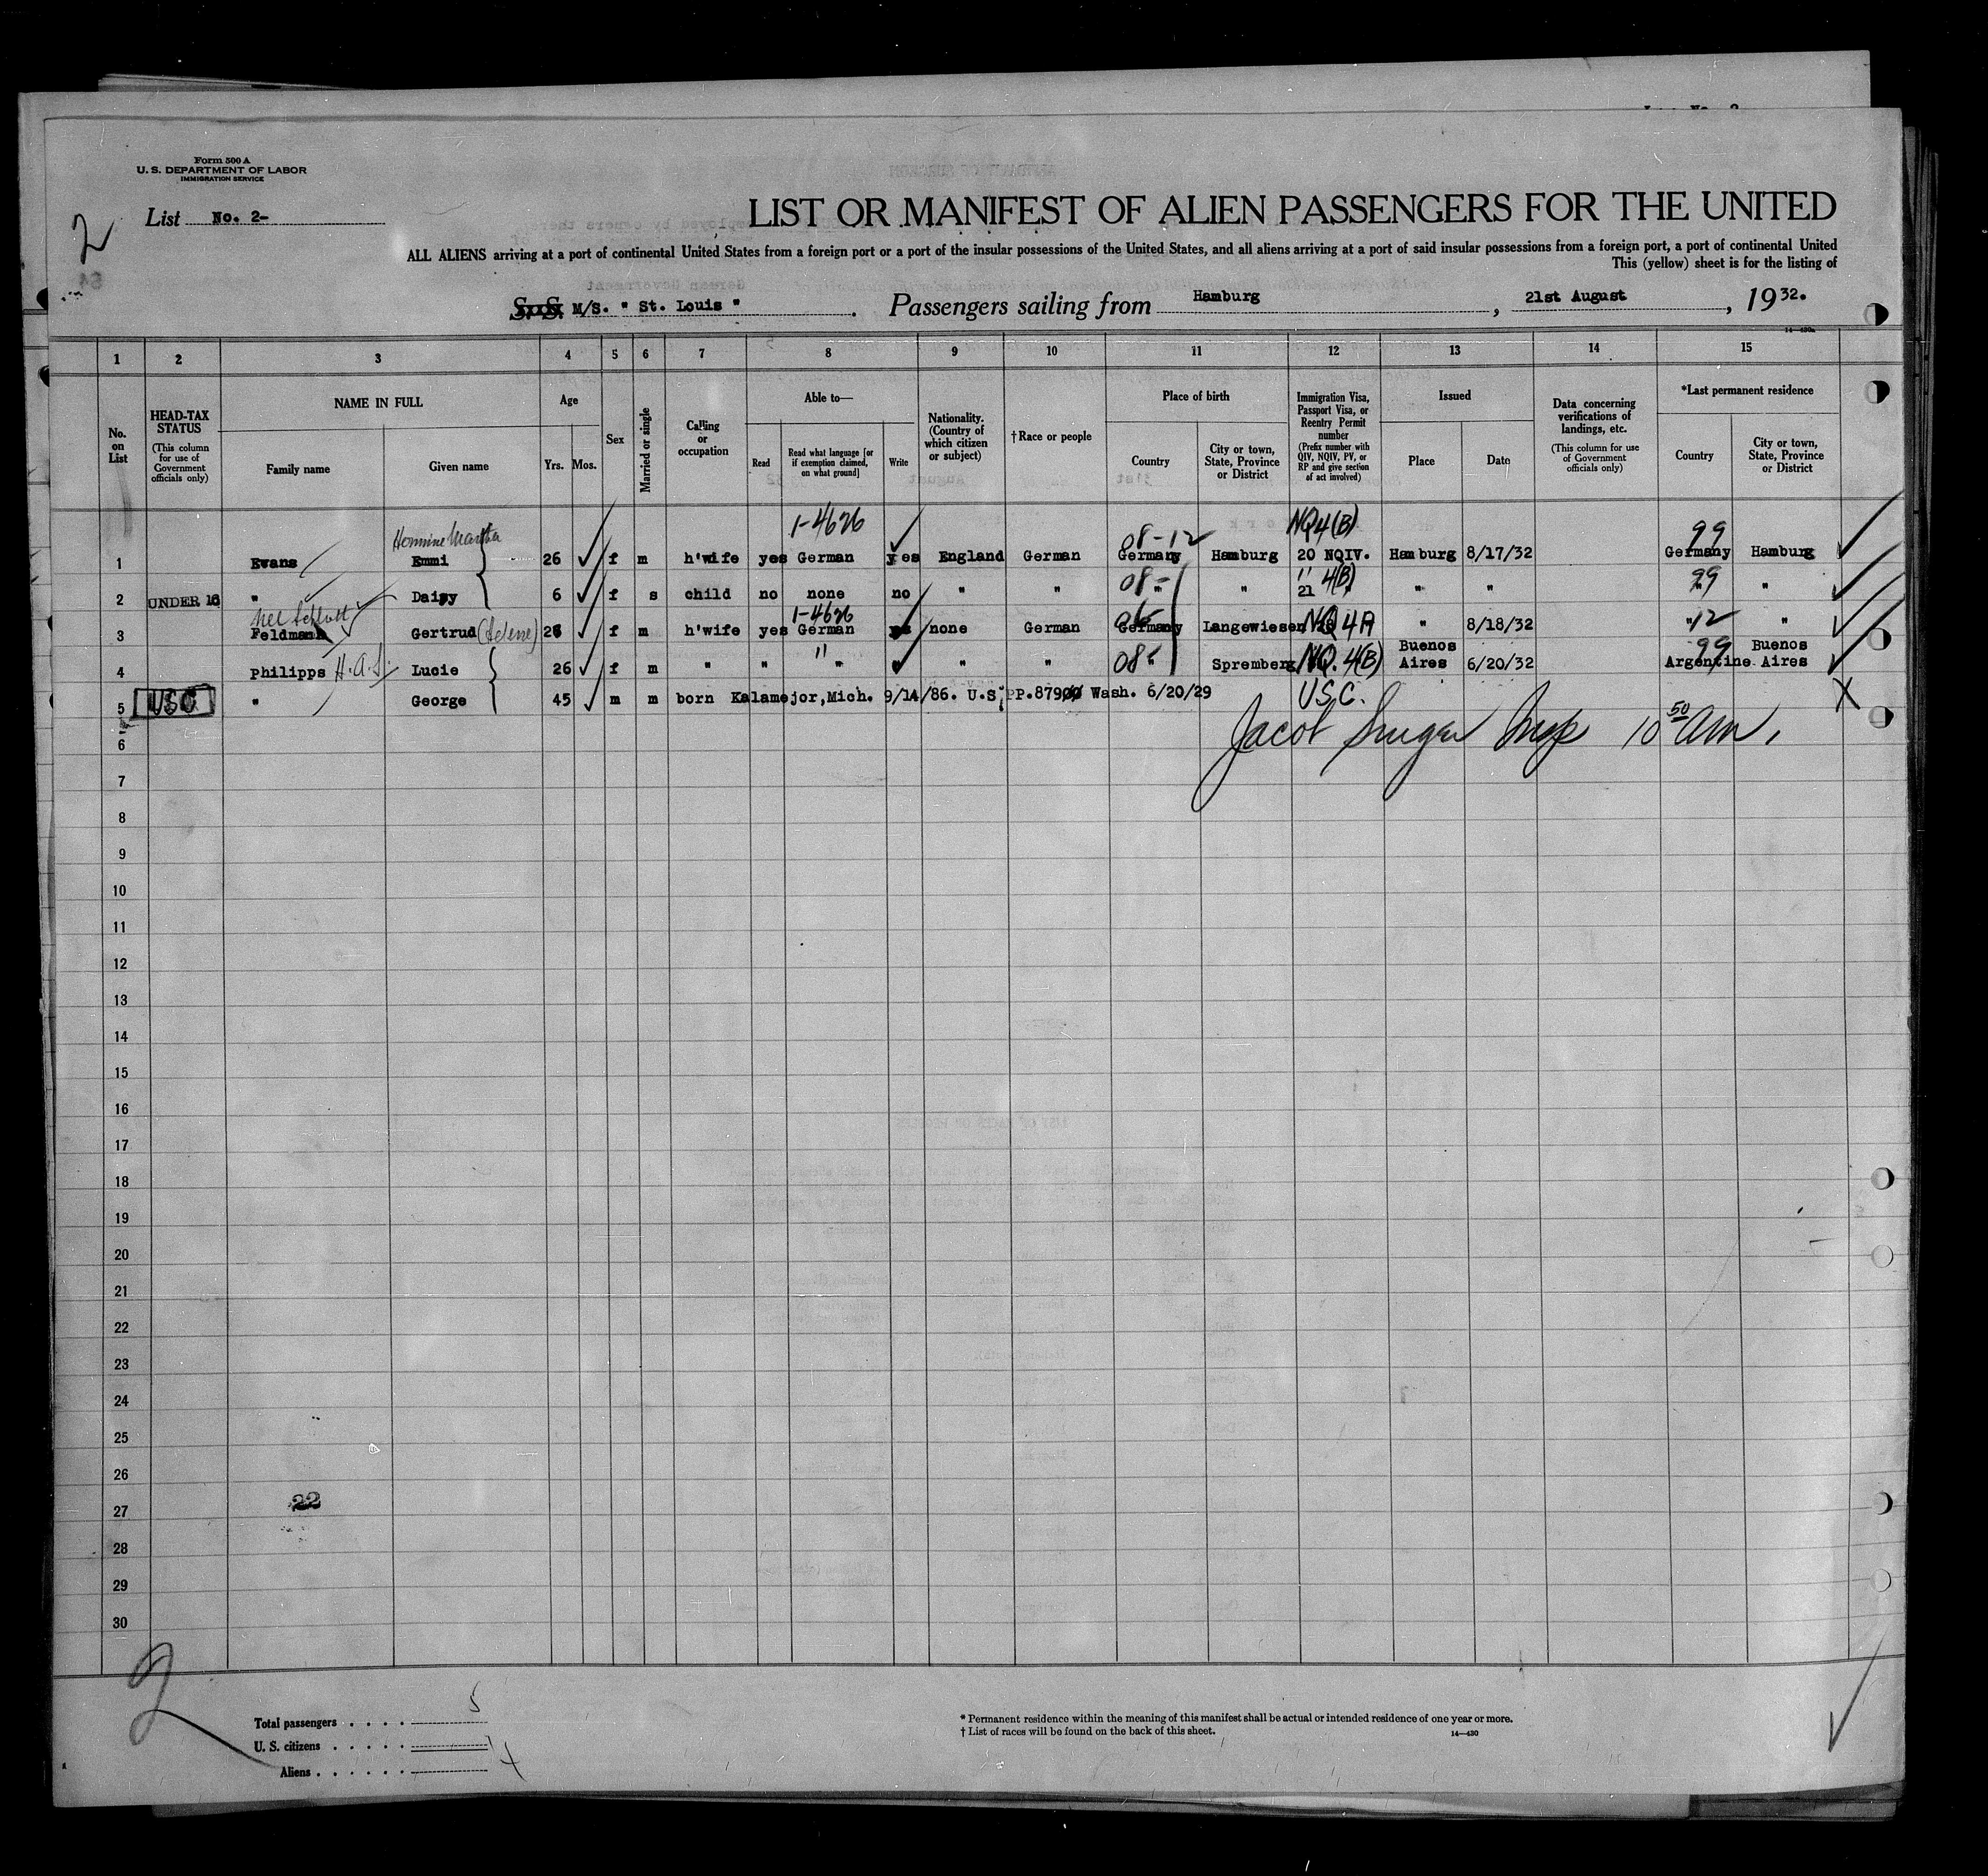 Form 500 A
U. S. DEPARTMENT OF LABOR
IMMIGRATION SERVICE
2
List No. 2-
LIST OR MANIFEST OF ALIEN PASSENGERS FOR THE UNITED
ALL ALIENS arriving at a port of continental United States from a foreign port or a port of the insular possessions of the United States, and all aliens arriving at a port of said insular possessions from a foreign port, a port of continental United
This (yellow) sheet is for the listing of
S. S. M/S. " St. Louis " . Passengers sailing from Hamburg , 21st August , 1932.
1 2 3 4 5 6 7 8 9 10 11 12 13 14 15
No. on List
HEAD-TAX STATUS
(This column for use of Government officials only)
NAME IN FULL
Family name Given name
Age
Yrs. Mos.
Sex
Married or single
Calling or occupation
Able to—
Read
Read what language [or if exemption claimed, on what ground]
Write
Nationality. (Country of which citizen or subject)
†Race or people
Place of birth
Country
City or town, State, Province or District
Immigration Visa, Passport Visa, or Reentry Permit number
(Prefix number with QIV, NQIV, PV, or RP and give section of act involved)
Issued
Place Date
Data concerning verifications of landings, etc.
(This column for use of Government officials only)
*Last permanent residence
Country
City or town, State, Province or District
Martha 1-4626 08-12 NQ4(B) 99
1 Evans Emmi 26 f m h'wife yes German yes England German Germany Hamburg 20 NQIV. Hamburg 8/17/32 Germany Hamburg
08- " 4(B) 99
2 UNDER 16 " Daisy 6 f s child no none no " " " " 21 " " " "
1-4626 NQ 4A 12
3 Feldmann Gertrud 26 f m h'wife yes German yes none German Germany Langewiesen " 8/18/32 " "
" 08- NQ. 4(B) 99
4 Philipps H.A.L. Lucie 26 f m " " " " " " " Spremberg Buenos Aires 6/20/32 Argentine Buenos Aires
5 USC " George 45 m m born Kalamejor,Mich. 9/14/86. U.S.PP.87900 Wash. 6/20/29 U.S.C. X
6
Jacob Insp 10 50 am.
7
8
9
10
11
12
13
14
15
16
17
18
19
20
21
22
23
24
25
26
27 22
28
29
30
2
Total passengers . . . . 5
U. S. citizens . . . . . 1
Aliens . . . . . . 4
* Permanent residence within the meaning of this manifest shall be actual or intended residence of one year or more.
† List of races will be found on the back of this sheet.
14—430